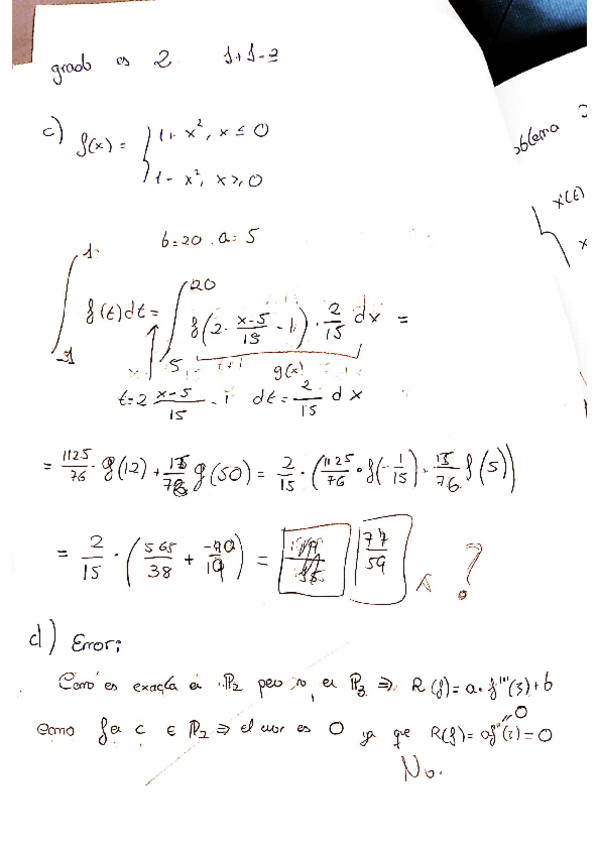 grado es 2 1+1=2
c) f(x) = { 1+x², x ≤ 0
1-x², x ≥ 0
oblema
b=20 . a= 5
x'(t)
∫_{-1}^{1} f(t)dt = ∫_{5}^{20} f(2· (x-5)/15 - 1) · 2/15 dx =
g(x)
t=2 (x-5)/15 - 1 dt = 2/15 dx
= 1125/76 · g(12) + 15/76 g(50) = 2/15 · (1125/76 · f(-1/15) · 15/76 f(5))
= 2/15 · (565/38 + -90/19) = 77/59 ?
d) Error;
Como es exacta en P₂ pero no en P₃ ⇒ R(f) = a· f'''(ξ)+b
Como f en c ∈ P₂ ⇒ el error es 0 ya que R(f)= af'''(ξ) = 0
0
No.